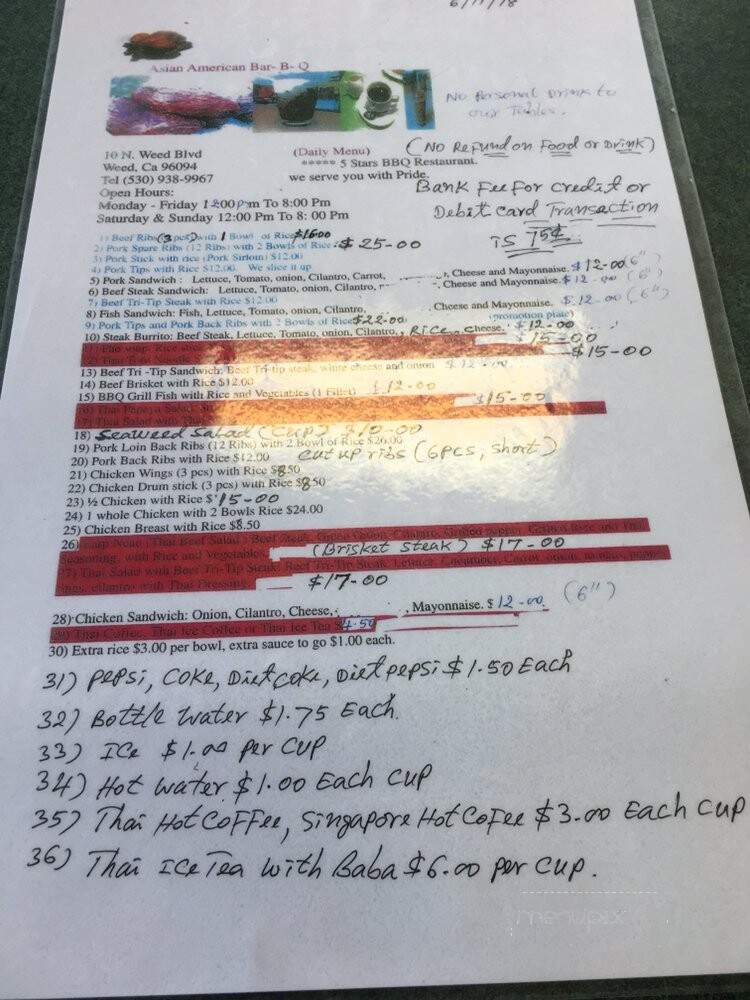 6/11/18
Asian American Bar- B- Q
No Personal Drink to
our Tables.
(No Refund on Food or Drink)
10 N. Weed Blvd
(Daily Menu)
Weed, Ca 96094
***** 5 Stars BBQ Restaurant.
Tel (530) 938-9967
we serve you with Pride.
Bank Fee for credit or
Debit card Transaction
is 75¢
Open Hours:
Monday - Friday 12:00 pm To 8:00 Pm
Saturday & Sunday 12:00 Pm To 8: 00 Pm
1) Beef Ribs (3 pcs) with 1 Bowl of Rice $16.00
2) Pork Spare Ribs (12 Ribs) with 2 Bowls of Rice $25-00
3) Pork Stick with rice (Pork Sirloin) $12.00
4) Pork Tips with Rice $12.00. We slice it up
5) Pork Sandwich : Lettuce, Tomato, onion, Cilantro, Carrot, Cheese and Mayonnaise. $12-00 (6")
6) Beef Steak Sandwich: Lettuce, Tomato, onion, Cilantro, Cheese and Mayonnaise. $12-00 (6")
7) Beef Tri-Tip Steak with Rice $12.00
8) Fish Sandwich: Fish, Lettuce, Tomato, onion, Cilantro, Cheese and Mayonnaise. $12-00 (6")
9) Pork Tips and Pork Back Ribs with 2 Bowls of Rice $22-00 (promotion plate)
10) Steak Burrito: Beef Steak, Lettuce, Tomato, onion, Cilantro, Rice cheese. $12-00
$15-00
$15-00
13) Beef Tri -Tip Sandwich: Beef Tri-tip steak, white cheese and onion $12
14) Beef Brisket with Rice $12.00
15) BBQ Grill Fish with Rice and Vegetables (1 Fillet) $12-00
16) Thai Papaya Salad $15-00
17) Thai Salad with
18) Seaweed Salad (cup) $10-00
19) Pork Loin Back Ribs (12 Ribs) with 2 Bowl of Rice $26.00
20) Pork Back Ribs with Rice $12.00 cut up ribs (6pcs, short)
21) Chicken Wings (3 pcs) with Rice $8.50
22) Chicken Drum stick (3 pcs) with Rice $8.50
23) ½ Chicken with Rice $15-00
24) 1 whole Chicken with 2 Bowls Rice $24.00
25) Chicken Breast with Rice $8.50
26) (Thai Beef Salad) Beef Steak,
Seasoning, with Rice and Vegetables. (Brisket steak) $17-00
27) Thai Salad with Beef Tri-Tip Steak: Beef Tri-Tip Steak, Lettuce, Cucumber, Carrot, onion, tomato,
cilantro with Thai Dressing. $17-00
28) Chicken Sandwich: Onion, Cilantro, Cheese, , Mayonnaise. $12-00 (6")
29) Thai Coffee, Thai Ice Coffee or Thai Ice Tea $4.50
30) Extra rice $3.00 per bowl, extra sauce to go $1.00 each.
31) Pepsi, Coke, Diet coke, Diet pepsi $1.50 Each
32) Bottle water $1.75 Each.
33) Ice $1.00 per cup
34) Hot water $1.00 Each cup
35) Thai Hot Coffee, Singapore Hot Cofee $3.00 Each cup
36) Thai Ice Tea with Baba $6.00 per cup.
menupix